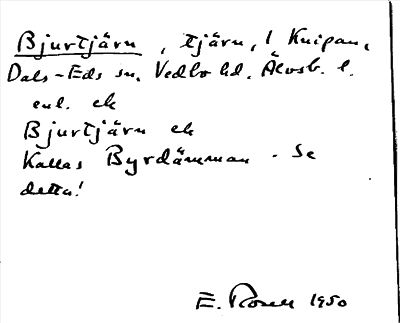 Bjurtjärn, tjärn, l Knipan,
Dals-Eds sn, Vedbo hd, Älvsb. l.
enl. ek
Bjurtjärn ek
Kallas Byrdämman. Se
detta!
E. Rosell 1950